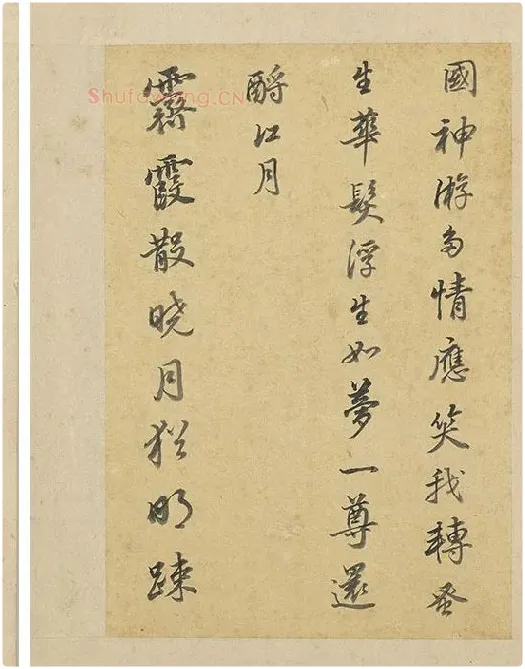 國神游多情應笑我轉蚤
生華髮浮生如夢一尊還
酹江月
霽霞散曉月猶明踈
Shufawang.CN